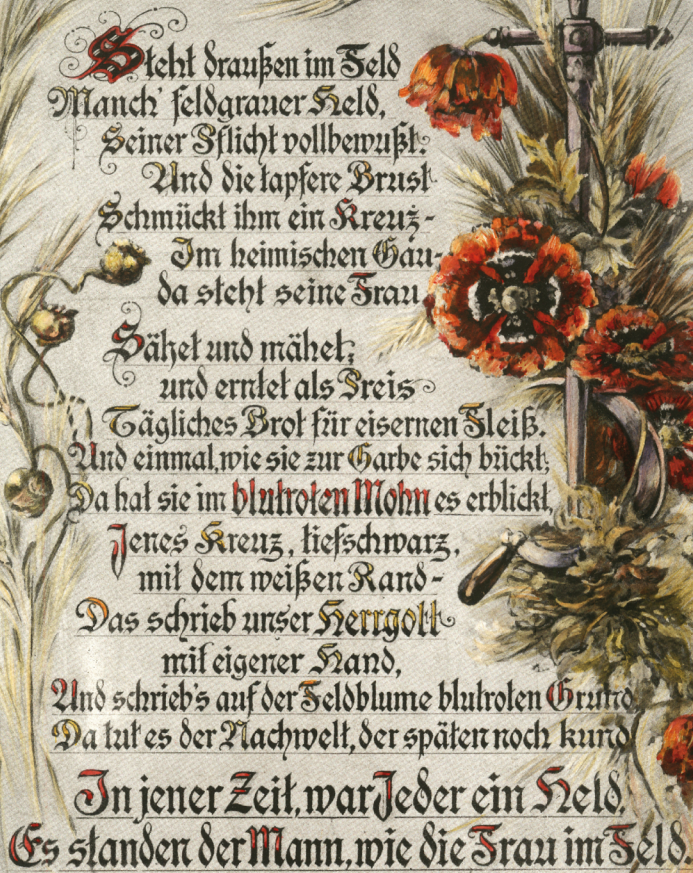 Steht draußen im Feld
Manch' feldgrauer Held,
Seiner Pflicht vollbewußt.
Und die tapfere Brust
Schmückt ihm ein Kreuz-
Im heimischen Gau-
da steht seine Frau,
Sähet und mähet;
und erntet als Preis
Tägliches Brot für eisernen Fleiß.
Und einmal, wie sie zur Garbe sich bückt;
Da hat sie im blutroten Mohn es erblickt,
Jenes Kreuz, tiefschwarz,
mit dem weißen Rand-
Das schrieb unser Herrgott
mit eigener Hand,
Und schrieb's auf der Feldblume blutroten Grund
Da tut es der Nachwelt, der späten noch kund
In jener Zeit, war Jeder ein Held.
Es standen der Mann, wie die Frau im Feld.